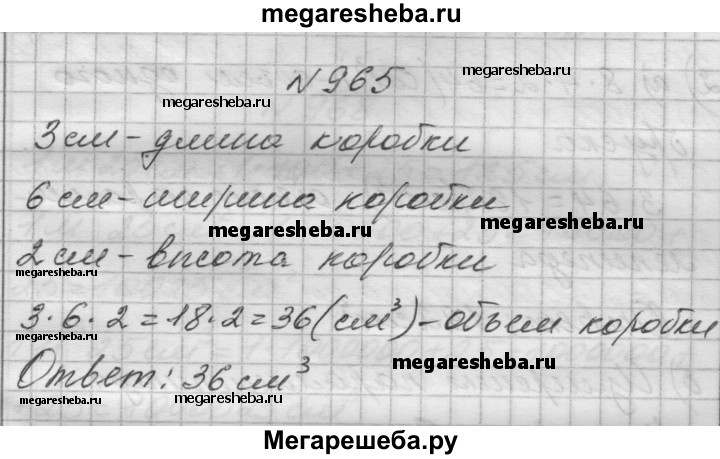 megaresheba.ru
N 965
megaresheba.ru
megaresheba.ru
3 см - длина коробки
6 см - ширина коробки
megaresheba.ru
megaresheba.ru
2 см - высота коробки
megaresheba.ru
3 · 6 · 2 = 18 · 2 = 36 (см³) - объем коробки
Ответ: 36 см³
megaresheba.ru
megaresheba.ru
Мегарешеба.ру